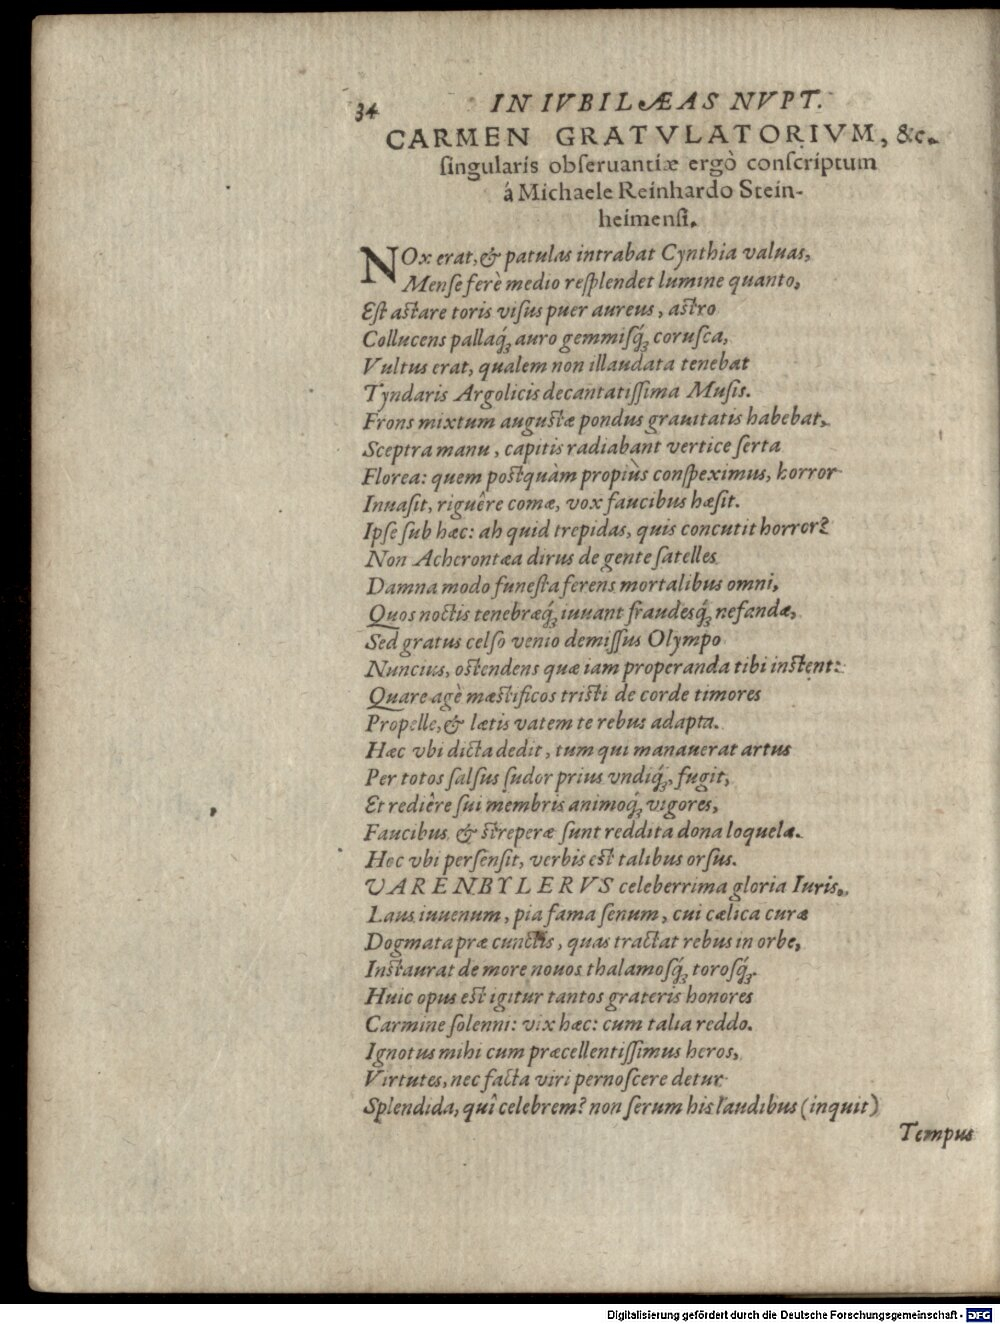 34 IN IVBILÆAS NVPT.
CARMEN GRATVLATORIVM, &c.
ſingularis obſeruantiæ ergò conſcriptum
á Michaele Reinhardo Stein-
heimenſi.
NOx erat, & patulas intrabat Cynthia valuas,
Menſe ferè medio reſplendet lumine quanto,
Eſt aſtare toris viſus puer aureus, aſtro
Collucens pallaq́; auro gemmiſq́; coruſca,
Vultus erat, qualem non illaudata tenebat
Tyndaris Argolicis decantatiſſima Muſis.
Frons mixtum auguſtæ pondus grauitatis habebat,
Sceptra manu, capitis radiabant vertice ſerta
Florea: quem poſtquàm propiùs conſpeximus, horror
Inuaſit, riguêre comæ, vox faucibus hæſit.
Ipſe ſub hæc: ah quid trepidas, quis concutit horror?
Non Acherontæa dirus de gente ſatelles
Damna modo funeſta ferens mortalibus omni,
Quos noctis tenebræq́; iuuant fraudesq́; nefandæ,
Sed gratus celſo venio demiſſus Olympo
Nuncius, oſtendens quæ iam properanda tibi inſtent:
Quare agè mæſtificos triſti de corde timores
Propelle, & lætis vatem te rebus adapta.
Hæc vbi dicta dedit, tum qui manauerat artus
Per totos ſalſus ſudor prius vndiq́; fugit,
Et rediêre ſui membris animoq́; vigores,
Faucibus & ſtreperæ ſunt reddita dona loquelæ.
Hoc vbi perſenſit, verbis eſt talibus orſus.
VARENBYLERVS celeberrima gloria Iuris,
Laus iuuenum, pia fama ſenum, cui cælica curæ
Dogmata præ cunctis, quas tractat rebus in orbe,
Inſtaurat de more nouos thalamoſq́; toroſq́;.
Huic opus eſt igitur tantos grateris honores
Carmine ſolenni: vix hæc: cum talia reddo.
Ignotus mihi cum præcellentiſſimus heros,
Virtutes, nec facta viri pernoſcere detur
Splendida, quî celebrem? non ſerum his laudibus (inquit)
Tempus
Digitalisierung gefördert durch die Deutsche Forschungsgemeinschaft - DFG